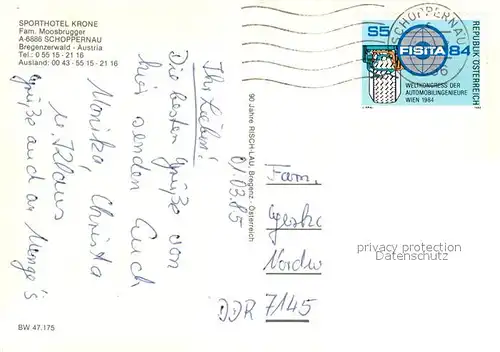 SPORTHOTEL KRONE
Fam. Moosbrugger
A-6886 SCHOPPERNAU
Bregenzerwald - Austria
Tel.: 0 55 15 - 21 16
Ausland: 00 43 - 55 15 - 21 16
Ihr Lieben!
01.03.85
Die besten Grüße von
hier senden Euch
Monika, Christa
u. Klaus
Grüße auch an Menge's
BW 47.175
90 Jahre RISCH-LAU, Bregenz - Österreich
SCHOPPERNAU
S5
FISITA 84
WELTKONGRESS DER
AUTOMOBILINGENIEURE
WIEN 1984
REPUBLIK ÖSTERREICH
Fam.
DDR 7145
privacy protection
Datenschutz